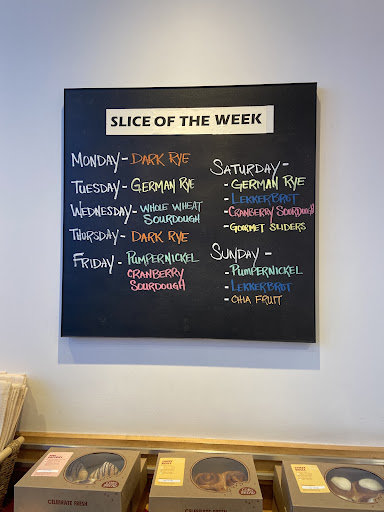 SLICE OF THE WEEK
MONDAY - DARK RYE
TUESDAY - GERMAN RYE
WEDNESDAY - WHOLE WHEAT
SOURDOUGH
THURSDAY - DARK RYE
FRIDAY - PUMPERNICKEL
CRANBERRY
SOURDOUGH
SATURDAY -
- GERMAN RYE
- LEKKERBROT
- CRANBERRY SOURDOUGH
- GOURMET SLIDERS
SUNDAY -
- PUMPERNICKEL
- LEKKERBROT
- CHIA FRUIT
CELEBRATE FRESH
CELEBRATE FRESH
CELEBRATE FRESH